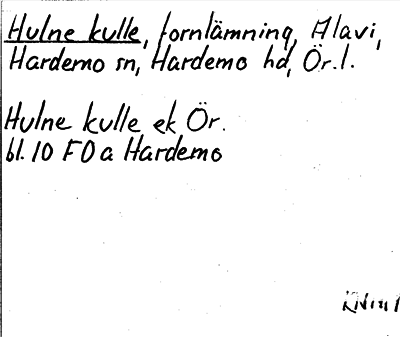 Hulne kulle, fornlämning, Alavi,
Hardemo sn, Hardemo hd, Ör.l.
Hulne kulle ek Ör.
bl. 10 FO a Hardemo